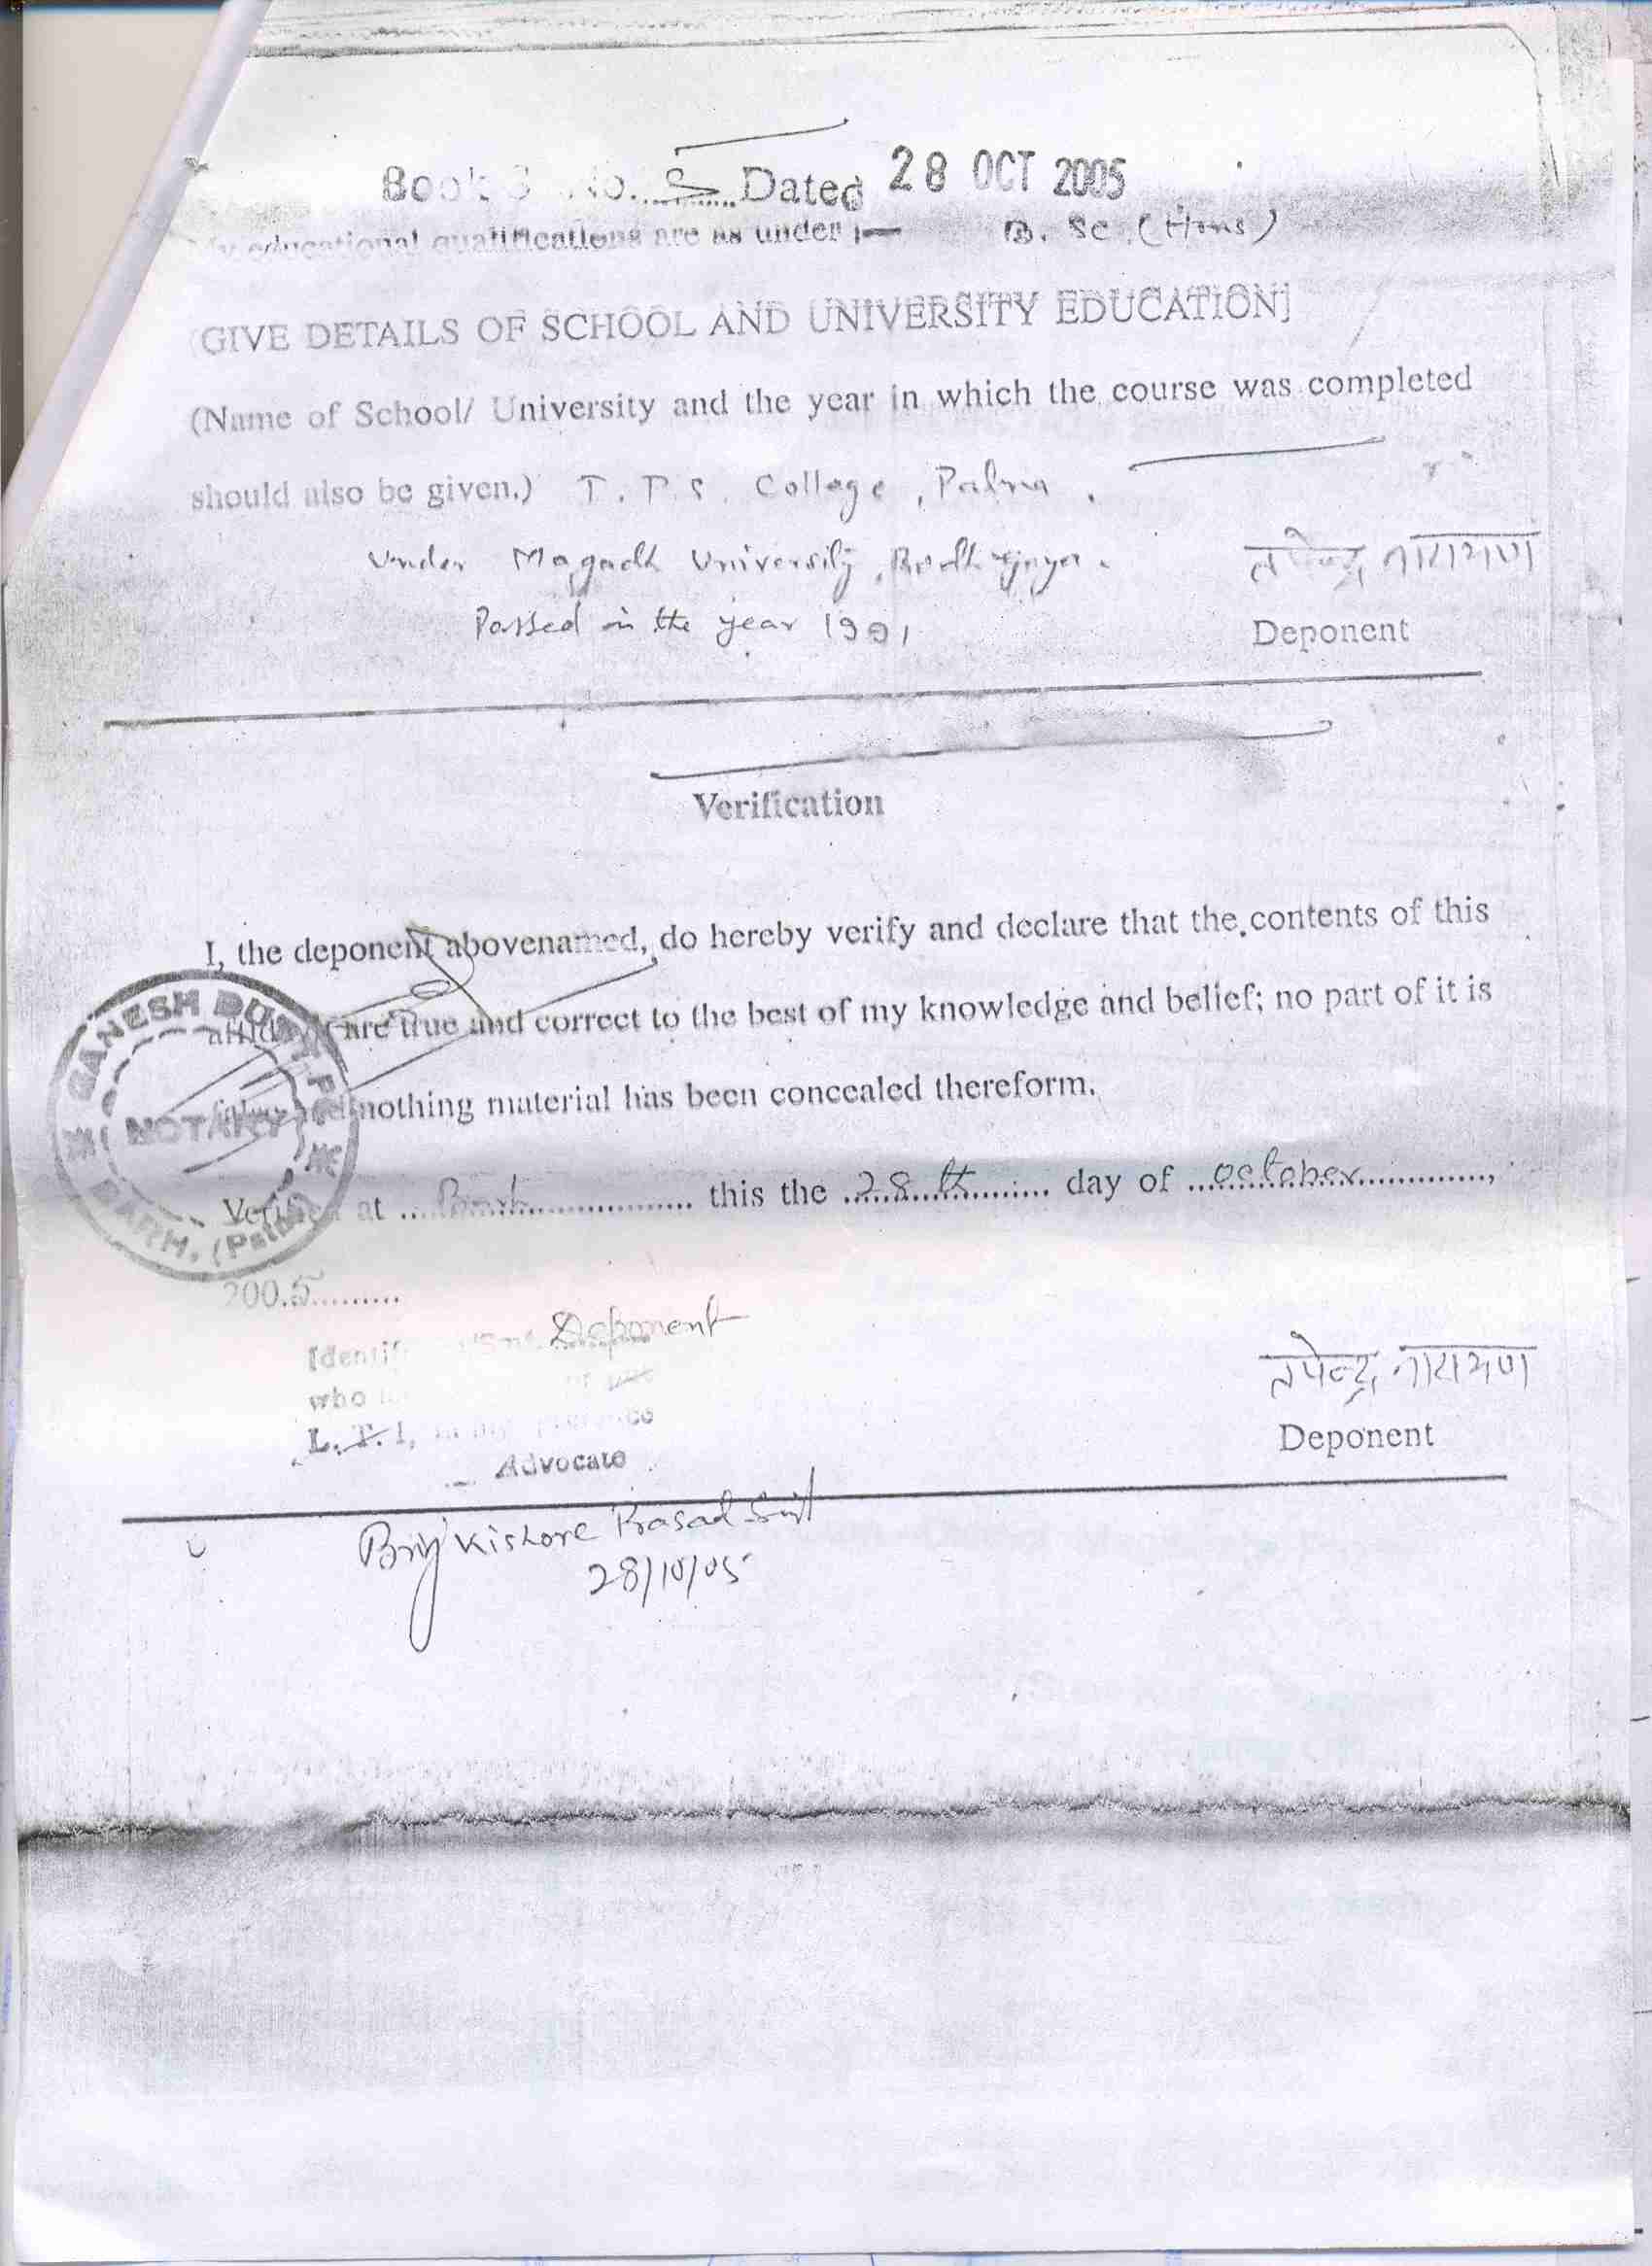 Book No. Dated 28 OCT 2005
My educational qualifications are as under :— B. Sc. (Hons)
[GIVE DETAILS OF SCHOOL AND UNIVERSITY EDUCATION]
(Name of School/ University and the year in which the course was completed
should also be given.) T. P. S. College, Patna.
Under Magadh University, Bodh Gaya.
Passed in the year 1991
तपेन्द्र नारायण
Deponent
Verification
I, the deponent abovenamed, do hereby verify and declare that the contents of this
affidavit are true and correct to the best of my knowledge and belief; no part of it is
nothing material has been concealed thereform.
GANESH DUTT
NOTARY
BARH. (Patna)
Verified at Barh this the 28th day of october,
2005
Deponent
who
L. T. I,
Advocate
तपेन्द्र नारायण
Deponent
Brij Kishore Prasad
28/10/05